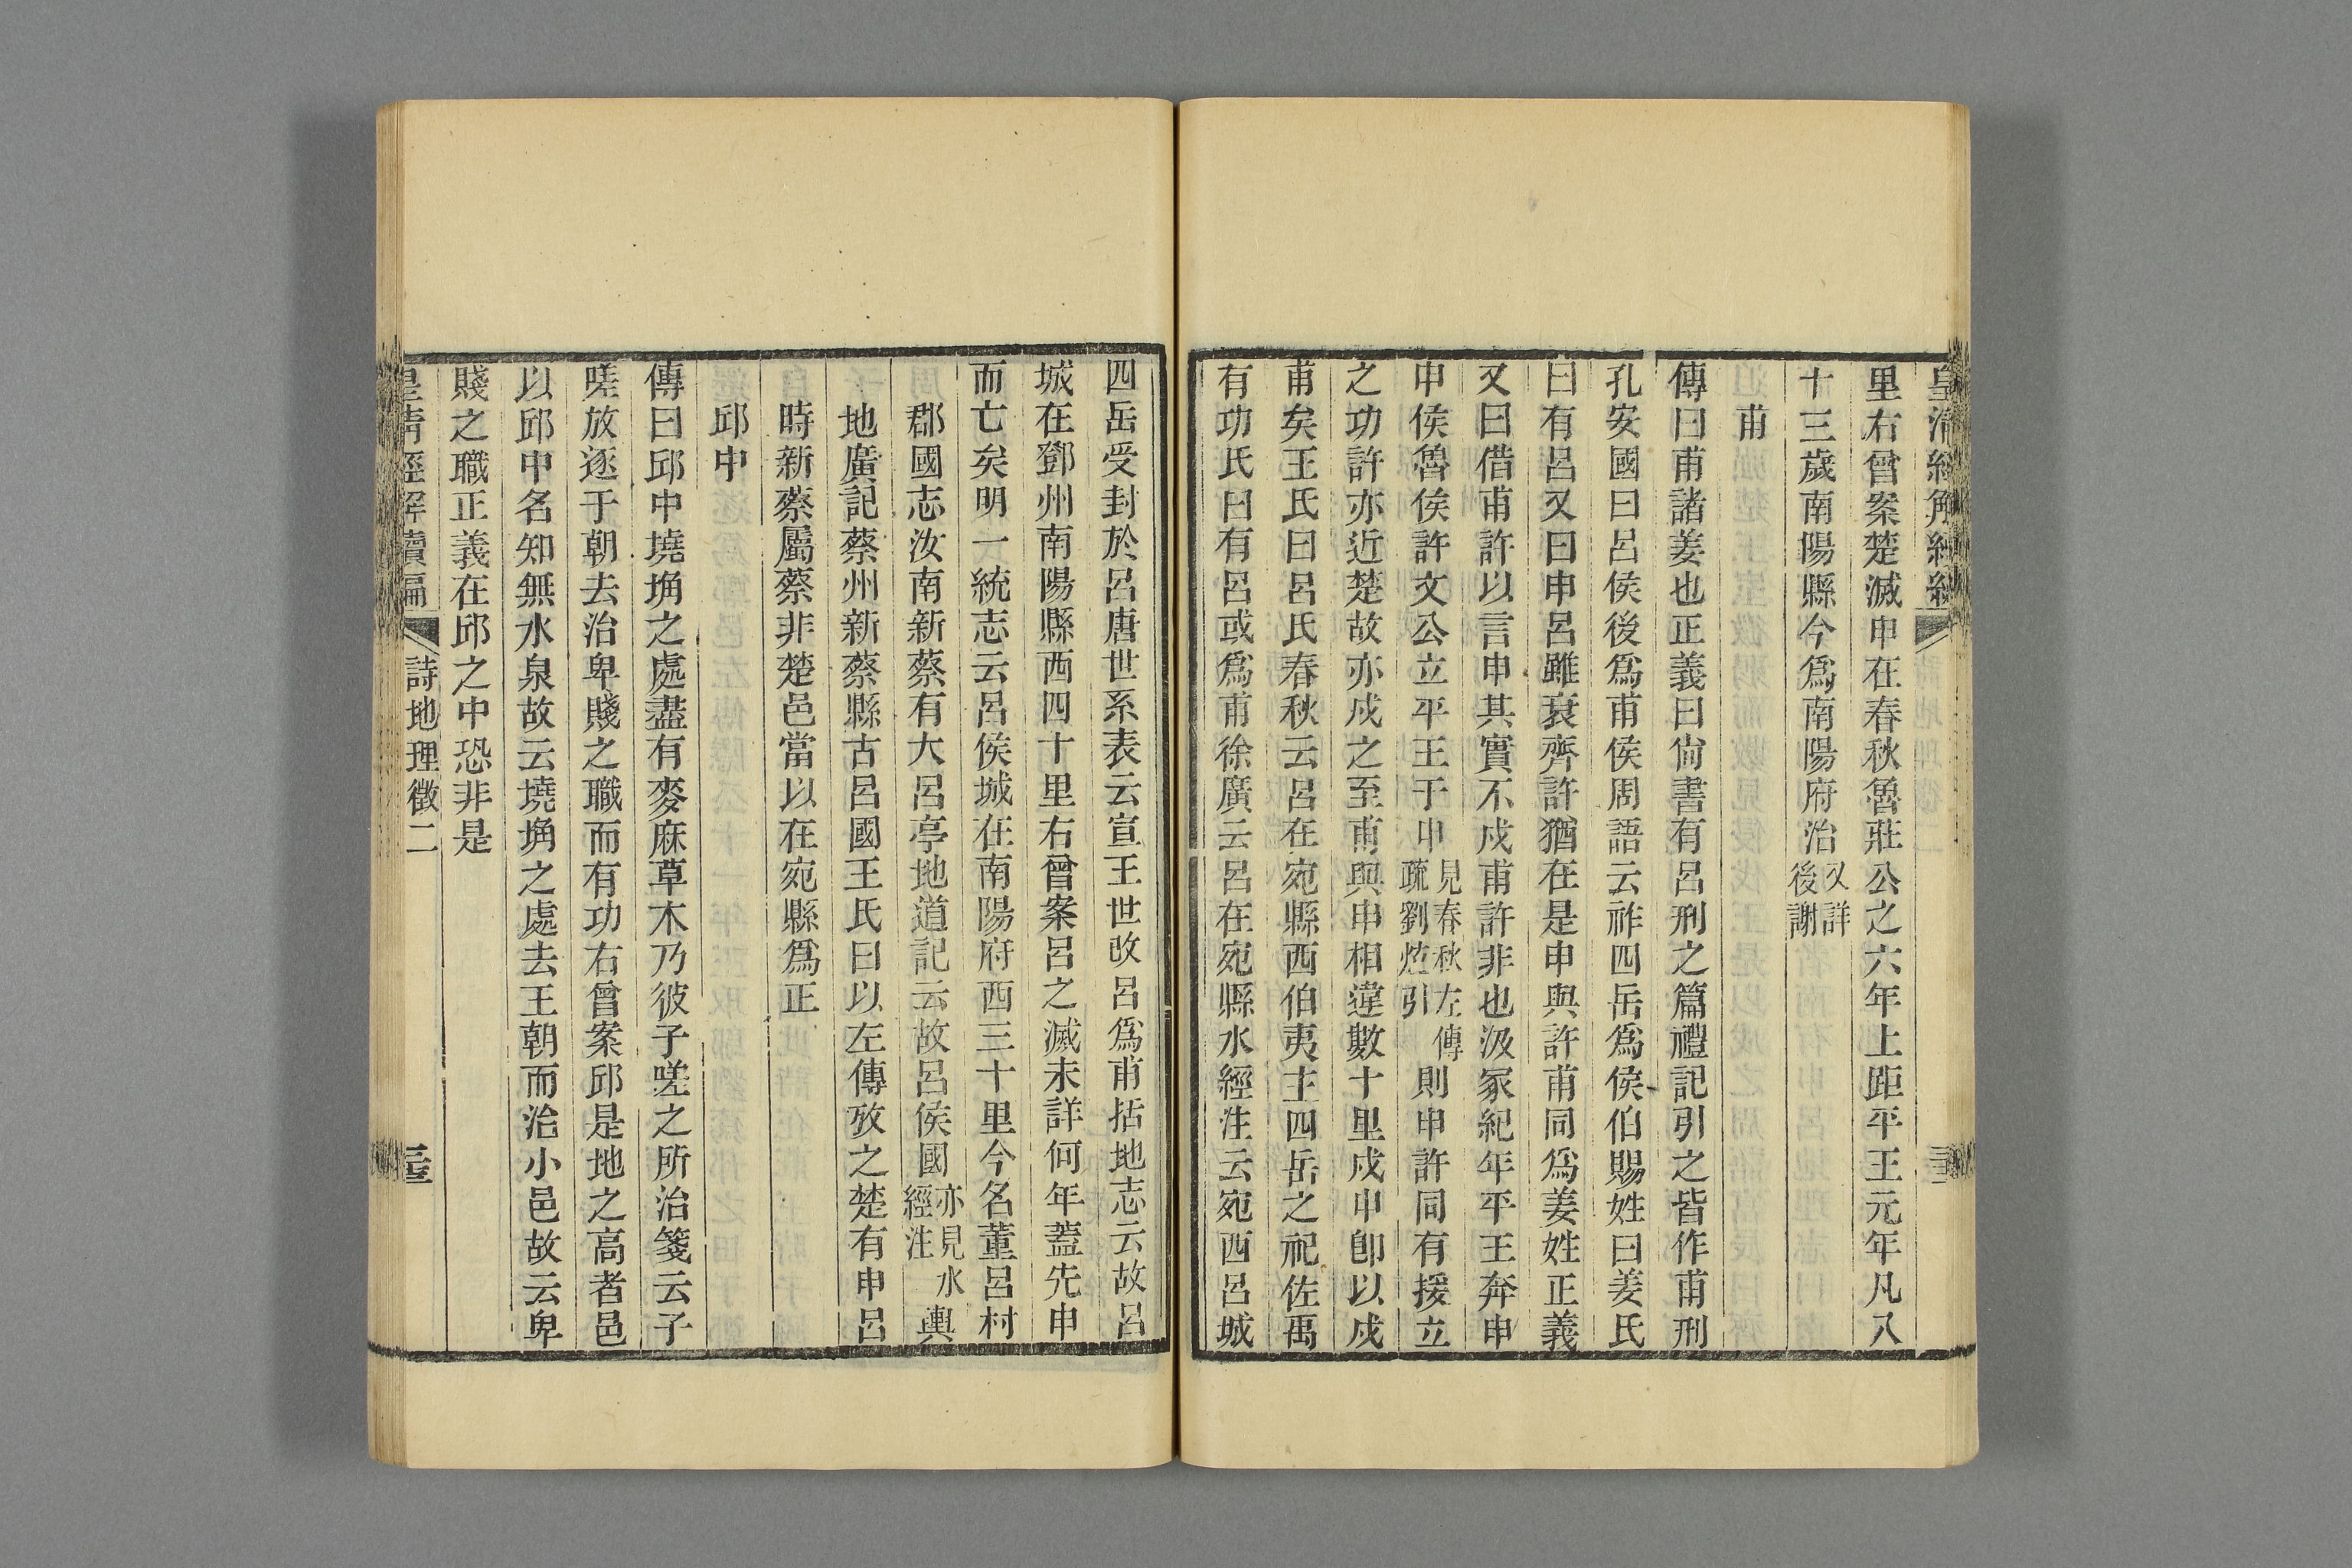 里右曾案楚滅申在春秋魯莊公之六年上距平王元年凡八
十三歲南陽縣今爲南陽府治又詳後謝
甫
傳曰甫諸姜也正義曰尙書有呂刑之篇禮記引之皆作甫刑
孔安國曰呂侯後爲甫侯周語云祚四岳爲侯伯賜姓曰姜氏
曰有呂又曰申呂雖衰齊許猶在是申與許甫同爲姜姓正義
又曰借甫許以言申其實不戍甫許非也汲冢紀年平王奔申
申侯魯侯許文公立平王于申見春秋左傳疏劉炫引則申許同有援立
之功許亦近楚故亦戍之至甫與申相違數十里戍申卽以戍
甫矣王氏曰呂氏春秋云呂在宛縣西伯夷主四岳之祀佐禹
有功氏曰有呂或爲甫徐廣云呂在宛縣水經注云宛西呂城
四岳受封於呂唐世系表云宣王世改呂爲甫括地志云故呂
城在鄧州南陽縣西四十里右曾案呂之滅未詳何年蓋先申
而亡矣明一統志云呂侯城在南陽府西三十里今名董呂村
郡國志汝南新蔡有大呂亭地道記云故呂侯國亦見水經注輿
地廣記蔡州新蔡縣古呂國王氏曰以左傳攷之楚有申呂
時新蔡屬蔡非楚邑當以在宛縣爲正
邱中
傳曰邱中墝埆之處盡有麥麻草木乃彼子嗟之所治箋云子
嗟放逐于朝去治卑賤之職而有功右曾案邱是地之高者邑
以邱中名知無水泉故云墝埆之處去王朝而治小邑故云卑
賤之職正義在邱之中恐非是
皇淸經解續編 詩地理徵二